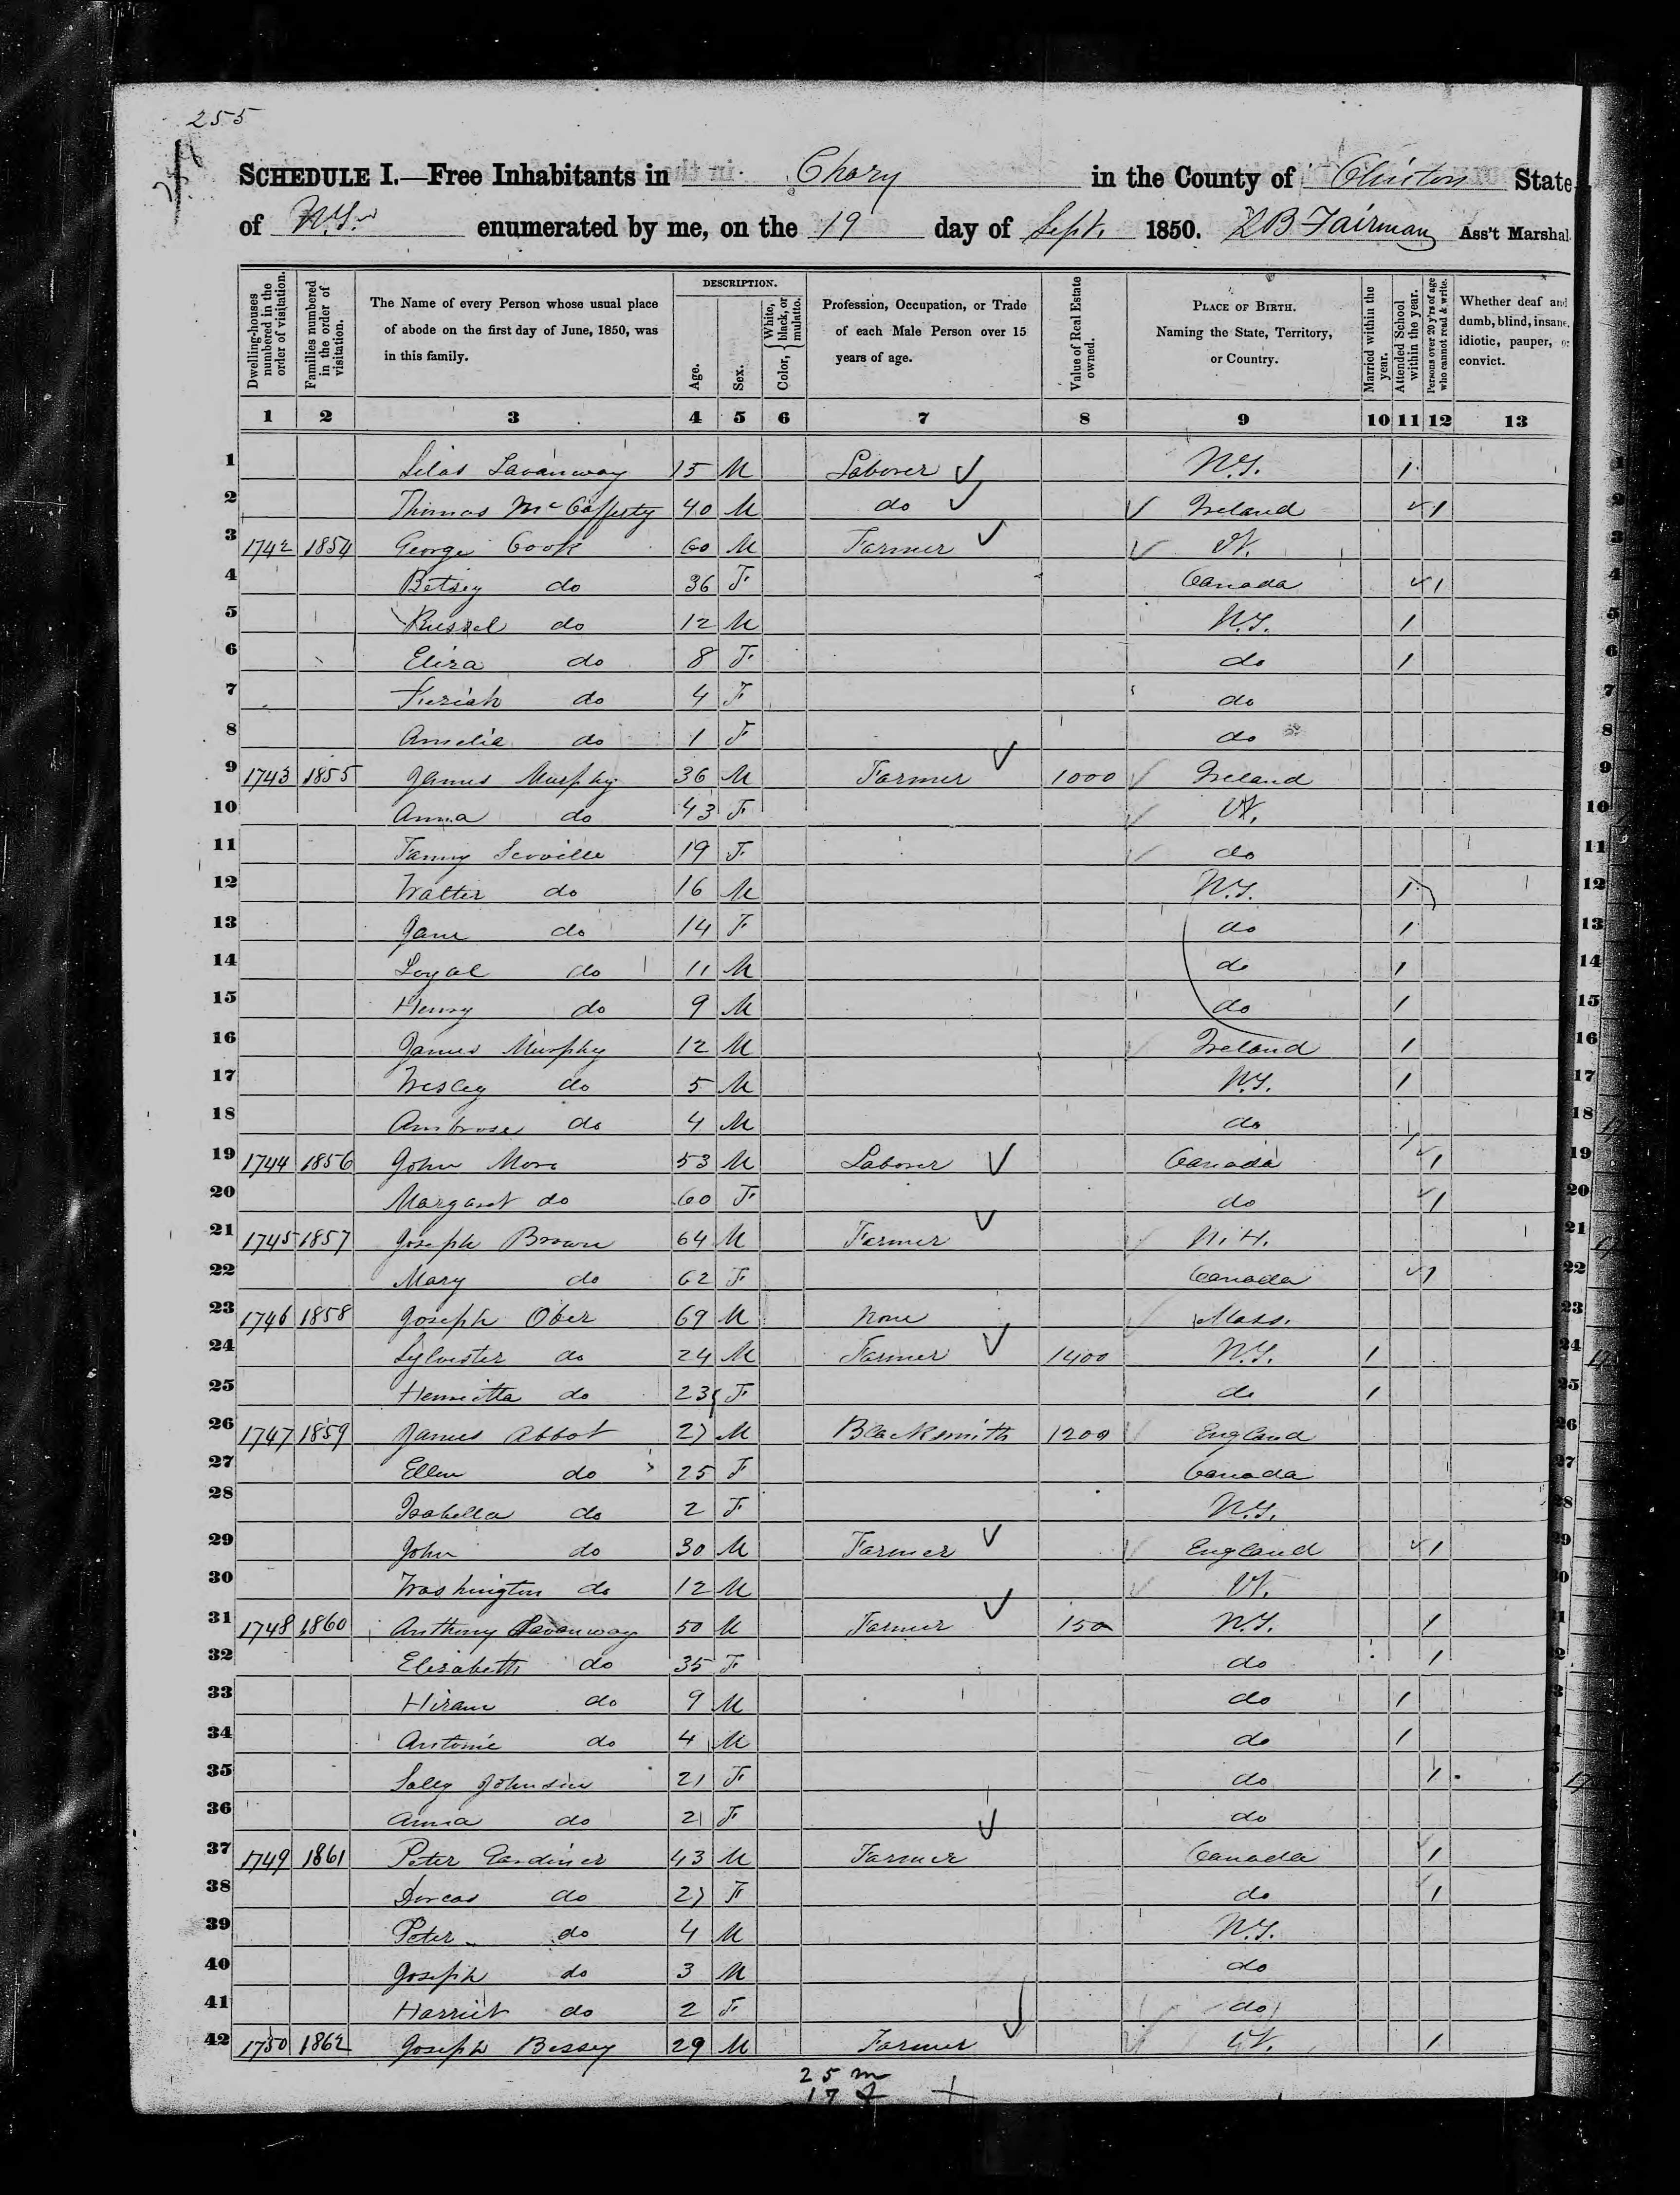 255
SCHEDULE I.—Free Inhabitants in Chazy in the County of Clinton State
of N.Y. enumerated by me, on the 19 day of Sept. 1850. L B Fairman Ass't Marshal
Dwelling-houses numbered in the order of visitation. Families numbered in the order of visitation. The Name of every Person whose usual place of abode on the first day of June, 1850, was in this family. DESCRIPTION. Age. Sex. Color, White, black, or mulatto. Profession, Occupation, or Trade of each Male Person over 15 years of age. Value of Real Estate owned. PLACE OF BIRTH. Naming the State, Territory, or Country. Married within the year. Attended School within the year. Persons over 20 y'rs of age who cannot read & write. Whether deaf and dumb, blind, insane, idiotic, pauper, or convict.
1 2 3 4 5 6 7 8 9 10 11 12 13
1 Silas Lavanway 15 M Laborer N.Y. 1 1
2 Thomas McCafferty 40 M do Ireland 1 2
3 1742 1854 George Cook 60 M Farmer Vt. 3
4 Betsey do 36 F Canada 1 4
5 Russel do 12 M N.Y. 1 5
6 Eliza do 8 F do 1 6
7 Keziah do 4 F do 7
8 Amelia do 1 F do 8
9 1743 1855 James Murphy 36 M Farmer 1000 Ireland 9
10 Anna do 43 F Vt. 10
11 Fanny Scoville 19 F do 11
12 Walter do 16 M N.Y. 1 12
13 Jane do 14 F do 1 13
14 Loyal do 11 M do 1 14
15 Henry do 9 M do 1 15
16 James Murphy 12 M Ireland 1 16
17 Wesley do 5 M N.Y. 1 17
18 Ambrose do 4 M do 18
19 1744 1856 John Moro 53 M Laborer Canada 1 19
20 Margaret do 60 F do 1 20
21 1745 1857 Joseph Brown 64 M Farmer N.H. 21
22 Mary do 62 F Canada 1 22
23 1746 1858 Joseph Ober 69 M None Mass. 23
24 Sylvester do 24 M Farmer 1400 N.Y. 1 24
25 Henrietta do 23 F do 1 25
26 1747 1859 James Abbot 27 M Blacksmith 1200 England 26
27 Ellen do 25 F Canada 27
28 Isabella do 2 F N.Y. 28
29 John do 30 M Farmer England 1 29
30 Washington do 12 M Vt. 30
31 1748 1860 Anthony Lavanway 50 M Farmer 150 N.Y. 1
32 Elizabeth do 35 F do 1
33 Hiram do 9 M do 1
34 Antonie do 4 M do 1
35 Sally Johnson 21 F do 1
36 Anna do 21 F do
37 1749 1861 Peter Gardiner 43 M Farmer Canada 1
38 Dorcas do 27 F do 1
39 Peter do 4 M N.Y.
40 Joseph do 3 M do
41 Harriet do 2 F do
42 1750 1862 Joseph Bessey 29 M Farmer Vt. 1
25 m
17 f